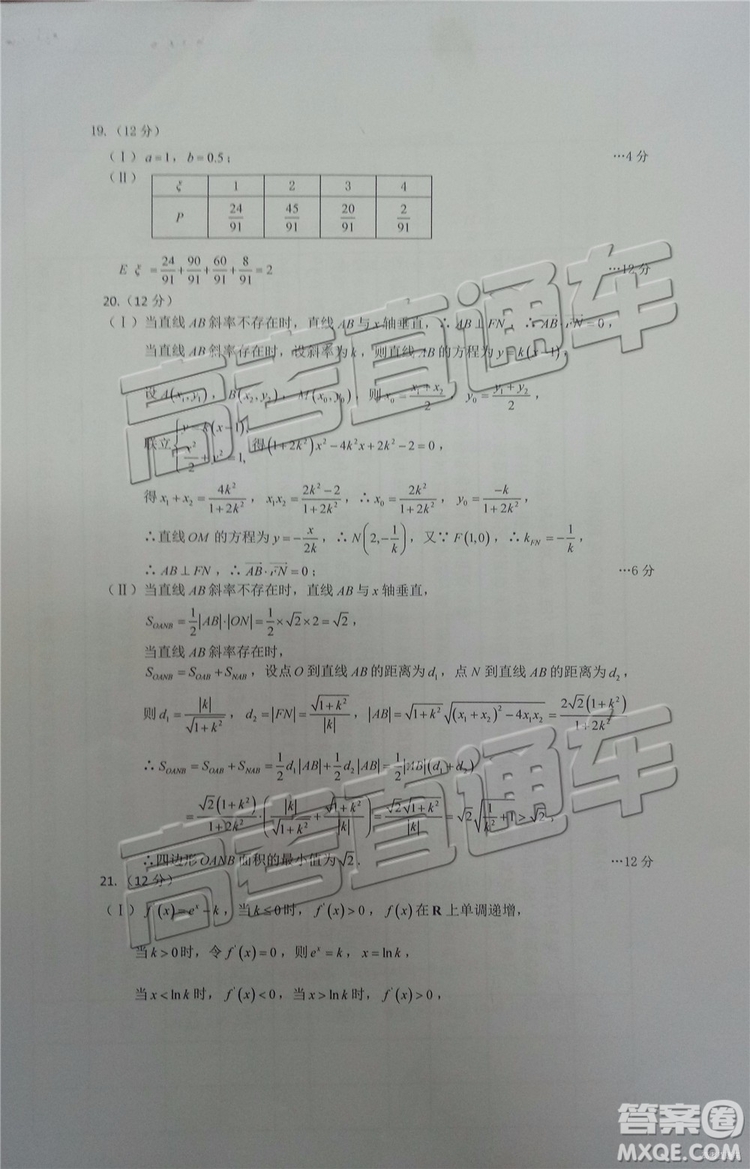 19.（12 分）
（Ⅰ）a=1，b=0.5； …4 分
（Ⅱ）
ξ 1 2 3 4
P 24/91 45/91 20/91 2/91
E ξ = 24/91 + 90/91 + 60/91 + 8/91 = 2 …12 分
20.（12 分）
（Ⅰ）当直线 AB 斜率不存在时，直线 AB 与 x 轴垂直，∴ AB ⊥ FN，∴ AB·FN = 0，
当直线 AB 斜率存在时，设斜率为 k，则直线 AB 的方程为 y = k(x−1)，
设 A(x₁,y₁)，B(x₂,y₂)，M(x₀,y₀)，则 x₀ = (x₁+x₂)/2，y₀ = (y₁+y₂)/2，
联立 { y=k(x−1), x²/2 + y² = 1, 得 (1+2k²)x² − 4k²x + 2k² − 2 = 0，
得 x₁ + x₂ = 4k²/(1+2k²)，x₁x₂ = (2k²−2)/(1+2k²)，∴ x₀ = 2k²/(1+2k²)，y₀ = −k/(1+2k²)，
∴直线 OM 的方程为 y = −x/(2k)，∴ N(2, −1/k)，又∵ F(1,0)，∴ k_FN = −1/k，
∴ AB ⊥ FN，∴ AB·FN = 0； …6 分
（Ⅱ）当直线 AB 斜率不存在时，直线 AB 与 x 轴垂直，
S_OANB = 1/2|AB|·|ON| = 1/2 × √2 × 2 = √2，
当直线 AB 斜率存在时，
S_OANB = S_OAB + S_NAB，设点 O 到直线 AB 的距离为 d₁，点 N 到直线 AB 的距离为 d₂，
则 d₁ = |k|/√(1+k²)，d₂ = |FN| = √(1+k²)/|k|，|AB| = √(1+k²) √((x₁+x₂)² − 4x₁x₂) = 2√2(1+k²)/(1+2k²)
∴ S_OANB = S_OAB + S_NAB = 1/2 d₁|AB| + 1/2 d₂|AB| = 1/2|AB|(d₁+d₂)
= √2(1+k²)/(1+2k²) · (|k|/√(1+k²) + √(1+k²)/|k|) = √2√(1+k²)/|k| = √2 √(1/k² + 1) > √2，
∴四边形 OANB 面积的最小值为 √2． …12 分
21.（12 分）
（Ⅰ）f′(x) = eˣ − k，当 k ≤ 0 时，f′(x) > 0，f(x) 在 R 上单调递增，
当 k > 0 时，令 f′(x) = 0，则 eˣ = k，x = ln k，
当 x < ln k 时，f′(x) < 0，当 x > ln k 时，f′(x) > 0，
高考直通车
高考直通车
答案圈
MXQE.COM